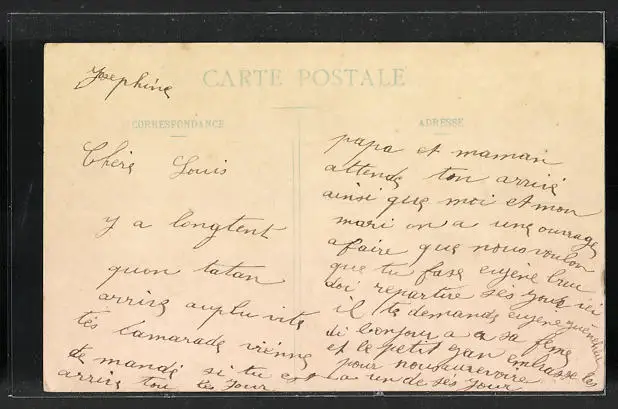 Josephine
CARTE POSTALE
CORRESPONDANCE
ADRESSE
Chère Louis
y a longtent
quon tatan
arrive auplu vite
tés Camarade vienne
de mandé si tu est
arrive tou les jour
papa et maman
attende ton arrivé
ainsi que moi et mon
mari on a une ouvrage
afaire que nous voulon
que tu fase eugène
doi repartire ses jour ici
il te demande eugène
di bonjour a sa feme
et le petit jan embrasse les
pour nous aurevoire
a un de ses jour